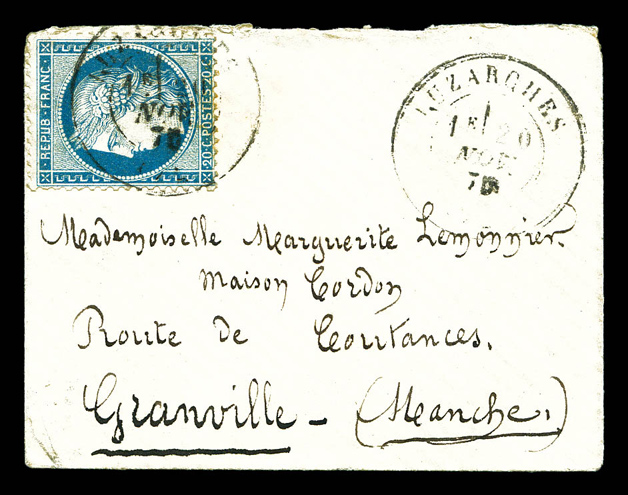 REPUB · FRANC ·
20 C · POSTES · 20 C
1E
NOV
70
AUZARGHES
1E 20
NOV.
70
Mademoiselle Marguerite Lemonnier.
Maison Cordon
Route de Coutances.
Granville - (Manche.)